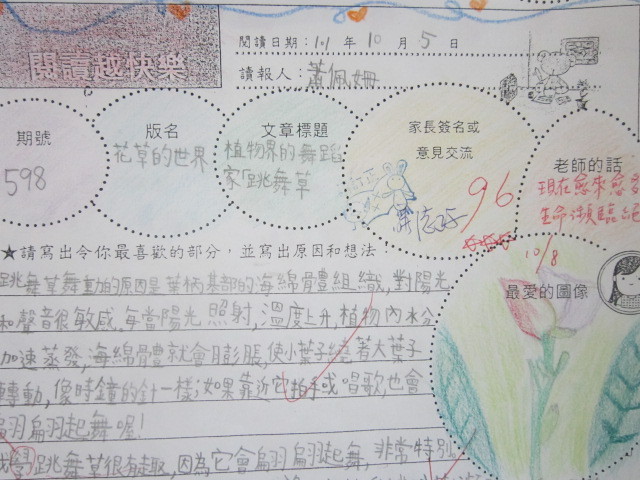 閱讀越快樂
閱讀日期：101年10月5日
讀報人：蕭佩姍
期號
598
版名
花草的世界
文章標題
植物界的舞蹈
家「跳舞草
家長簽名或
意見交流
96
10/8
老師的話
現在愈來愈多
生命須臨
★請寫出令你最喜歡的部分，並寫出原因和想法
最愛的圖像
跳舞草舞動的原因是葉柄基部的海綿體組織,對陽光
和聲音很敏感,每當陽光照射,溫度上升,植物內水分
加速蒸發,海綿體就會膨脹,使小葉子繞著大葉子
轉動,像時鐘的針一樣;如果靠近它拍手或唱歌,也會
翩翩起舞喔!
跳舞草很有趣,因為它會翩翩起舞,非常特別